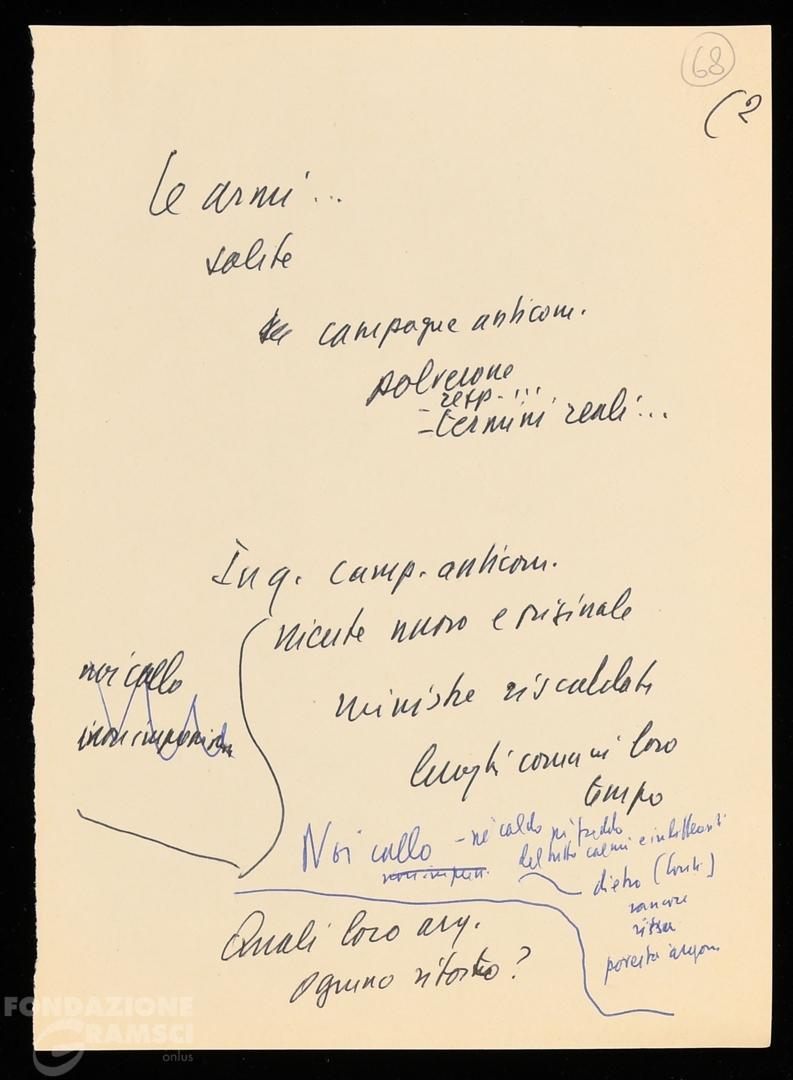 68
(2
le armi...
solite
campagne anticom.
polverone
resp. - !!!
- termini reali...
Inq. camp. anticom.
niente nuovo e originale
minestre riscaldate
luoghi comuni loro
tempo
noi callo
Noi callo - né caldo né freddo
del tutto calmi e indifferenti
dietro (
rancore
rissa
povertà argom.
Quali loro arg.
ognuno ritorto?
FONDAZIONE
GRAMSCI
onlus